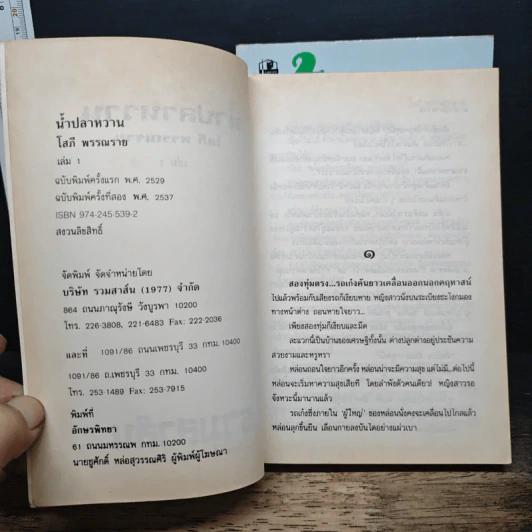 น้ำปลาหวาน
โสภี พรรณราย
เล่ม 1
ฉบับพิมพ์ครั้งแรก พ.ศ. 2529
ฉบับพิมพ์ครั้งที่สอง พ.ศ. 2537
ISBN 974-245-539-2
สงวนลิขสิทธิ์
จัดพิมพ์ จัดจำหน่ายโดย
บริษัท รวมสาส์น (1977) จำกัด
864 ถนนภาณุรังษี วังบูรพา 10200
โทร. 226-3808, 221-6483 Fax: 222-2036
และที่ 1091/86 ถนนเพชรบุรี 33 กทม. 10400
1091/86 ถ.เพชรบุรี 33 กทม. 10400
โทร. 253-1489 Fax: 253-7915
พิมพ์ที่
อักษรพิทยา
61 ถนนมหรรณพ กทม. 10200
นายชูศักดิ์ หล่อสุวรรณศิริ ผู้พิมพ์ผู้โฆษณา
๑
สองทุ่มตรง...รถเก๋งคันยาวเคลื่อนออกนอกคฤหาสน์
ไปแล้วพร้อมกับเสียงรถก็เงียบหาย หญิงสาวนั่งบนระเบียงชะโงกมอง
ทางหน้าต่าง ถอนหายใจยาว...
เพียงสองทุ่มก็เงียบและมืด
ละแวกนี้เป็นบ้านของเศรษฐีทั้งนั้น ต่างปลูกต่างอยู่ประชันความ
สวยงามและหรูหรา
หล่อนถอนใจยาวอีกครั้ง หล่อนน่าจะมีความสุข แต่ไม่มี...ต่อไปนี้
หล่อนจะเริ่มหาความสุขเสียที โดยลำพังตัวคนเดียว! หญิงสาวรอ
จังหวะนี้มานานแล้ว
รถเก๋งซึ่งภายใน 'ผู้ใหญ่' ของหล่อนนั่งคงจะเคลื่อนไปไกลแล้ว
หล่อนลุกขึ้นยืน เลื่อนกายลงบันไดอย่างแผ่วเบา